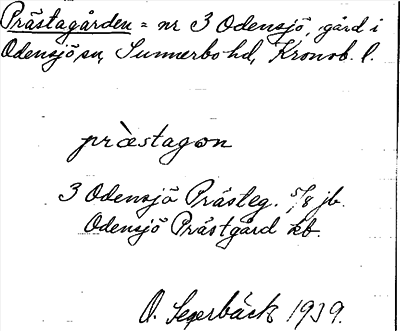 Prästagården = nr 3 Odensjö, gård i
Odensjö sn, Sunnerbo hd, Kronob. l.
pràstagon
3 Odensjö Prästeg. 5/8 jb.
Odensjö Prästgård kb.
O. Segerbäck 1939.